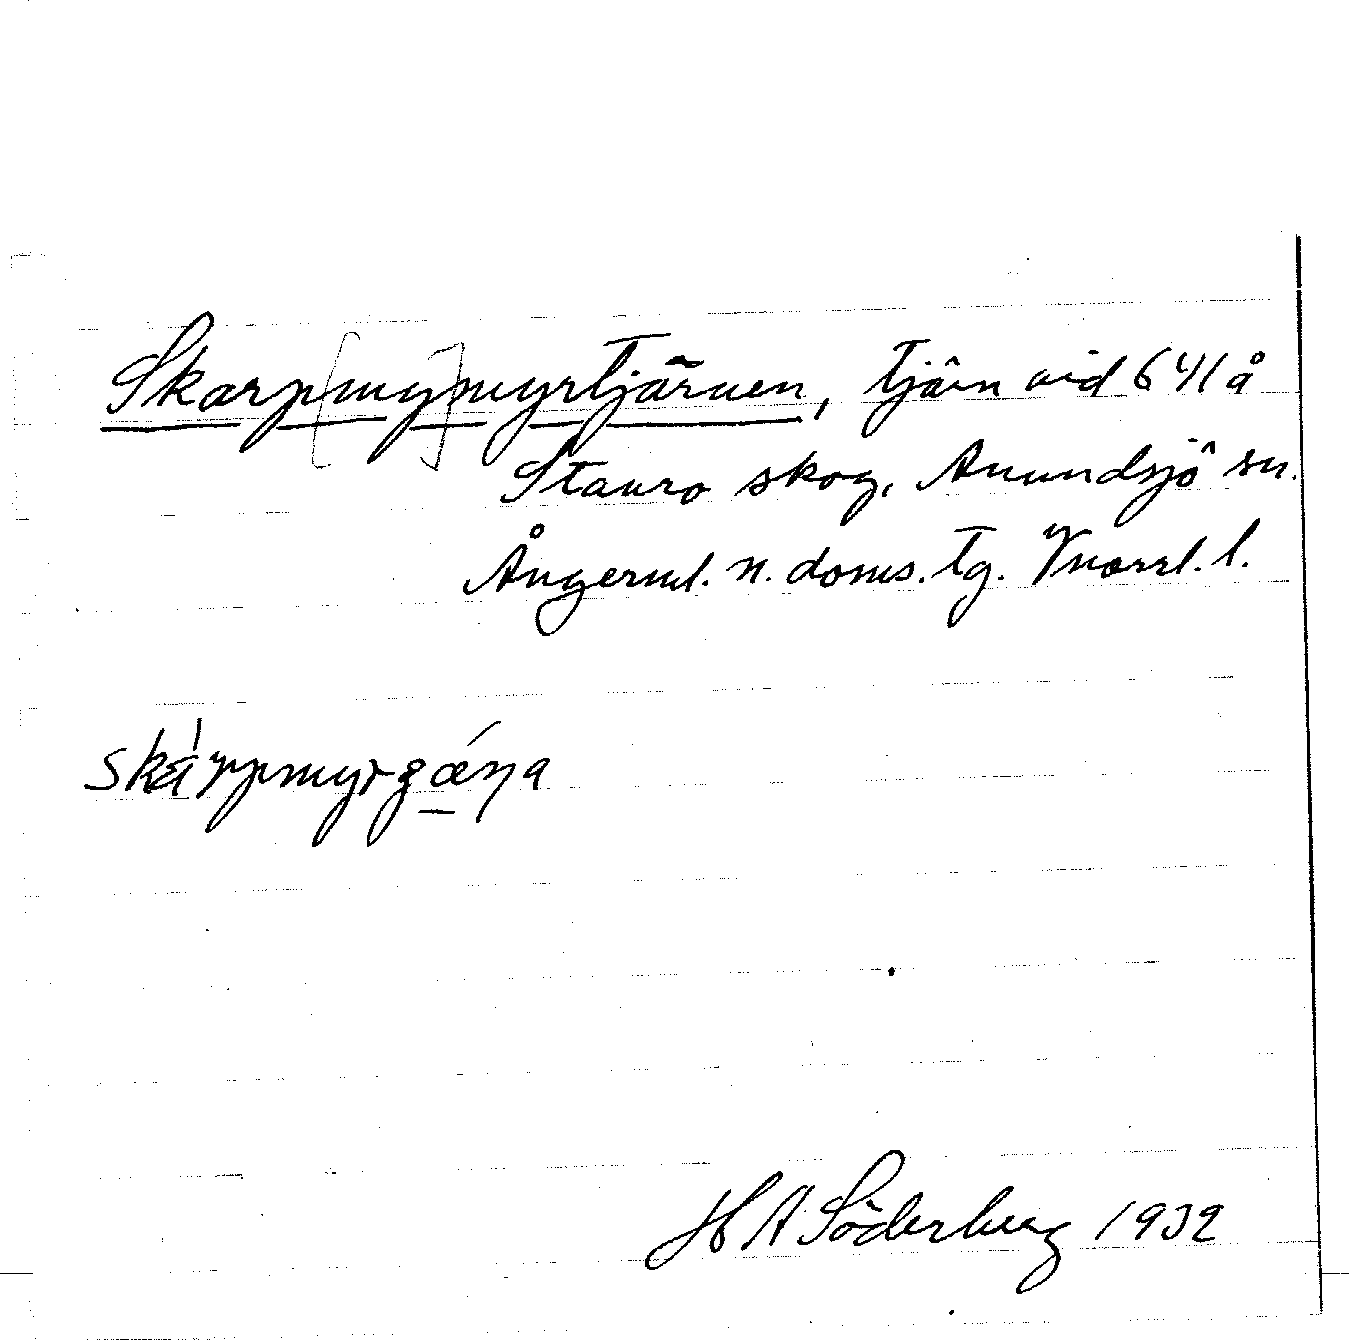 Skarp[my]myrtjärnen, tjärn vid 641 å
Stauro skog, Anundsjö sn.
Ångerml. n. doms. tg. Vnorrl. l.
skárpmyrgǽŋa
H A Söderberg 1932